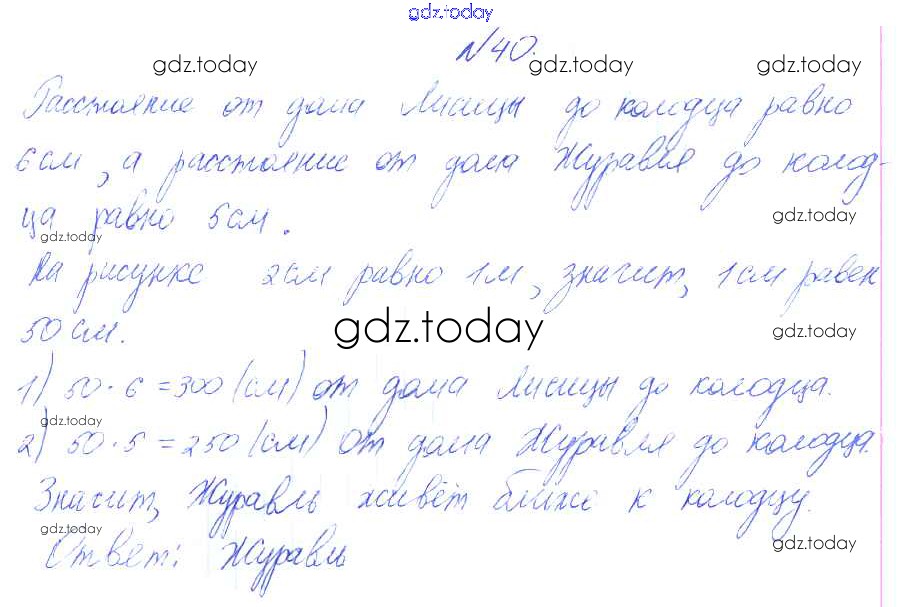 gdz.today
№40.
gdz.today gdz.today gdz.today
Расстояние от дома Лисицы до колодца равно
6см, а расстояние от дома Журавля до колод-
ца равно 5см.
gdz.today
gdz.today
На рисунке 2см равно 1м, значит, 1см равен
50см.
gdz.today
gdz.today
1) 50·6=300(см) от дома Лисицы до колодца.
gdz.today
gdz.today
2) 50·5=250(см) от дома Журавля до колодца.
Значит, Журавль живёт ближе к колодцу.
gdz.today
gdz.today
Ответ: Журавль